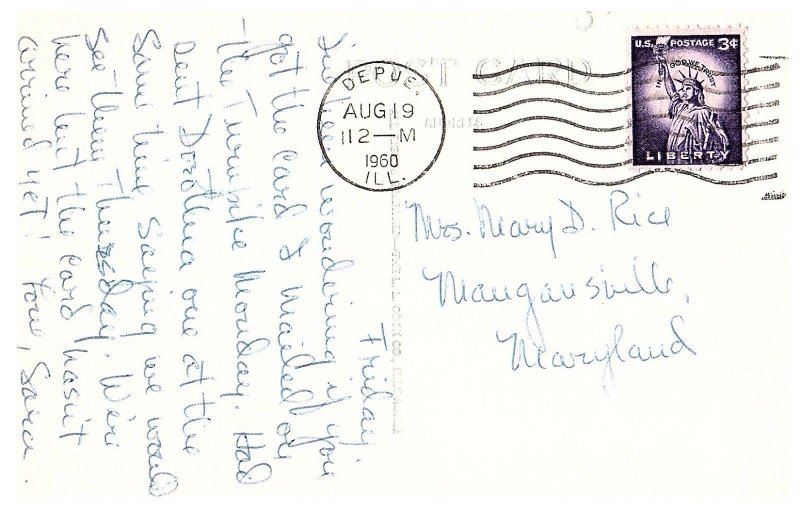 POST CARD
ADDRESS
DEPUE,
AUG 19
12-M
1960
ILL.
U.S. POSTAGE 3¢
IN GOD WE TRUST
LIBERTY
Mrs. Mary D. Rice
Maugansville,
Maryland
Friday.
Just been wondering if you
got the card I mailed on
the Turnpike Monday. Had
sent Dorothea one at the
same time saying we would
see them Thursday. We're
here but the card hasn't
arrived yet! Love, Sara.